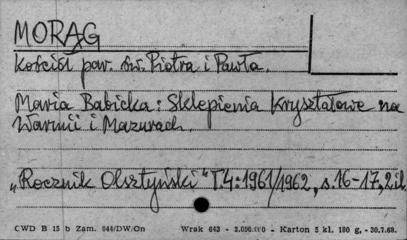 MORĄG
Kościół par. św. Piotra i Pawła.
Maria Babicka: Sklepienia kryształowe na
Warmii i Mazurach.
„Rocznik Olsztyński" T.4: 1961/1962, s.16-17, 2 il.
CWD B 15 b Zam. 644/DW/On Wrak 643 - 2.000.000 - Karton 5 kl. 180 g, - 30.7.68.